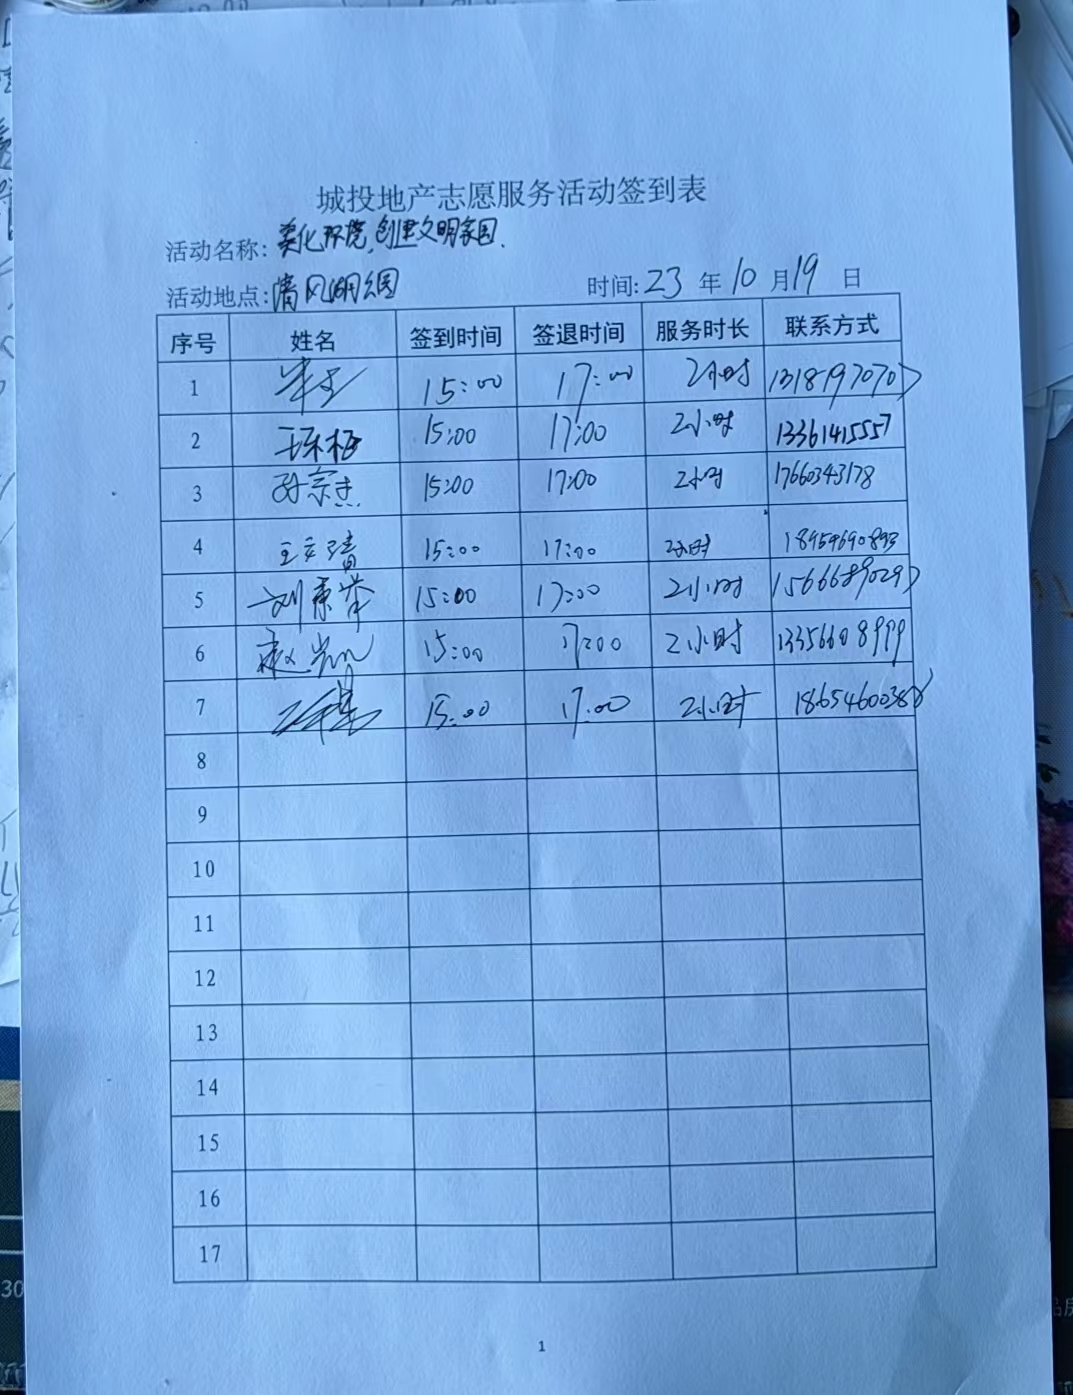 城投地产志愿服务活动签到表
活动名称: 美化环境,创建文明家园.
活动地点: 清风湖公园 时间: 23 年 10 月 19 日
序号 姓名 签到时间 签退时间 服务时长 联系方式
1 15:00 17:00 2小时
2 15:00 17:00 2小时 13361415557
3 孙宗杰 15:00 17:00 2小时 17660343178
4 15:00 17:00 2小时 18954690893
5 15:00 17:00 2小时
6 赵岩 15:00 17:00 2小时 13356608999
7 15:00 17:00 2小时
8
9
10
11
12
13
14
15
16
17
1
30